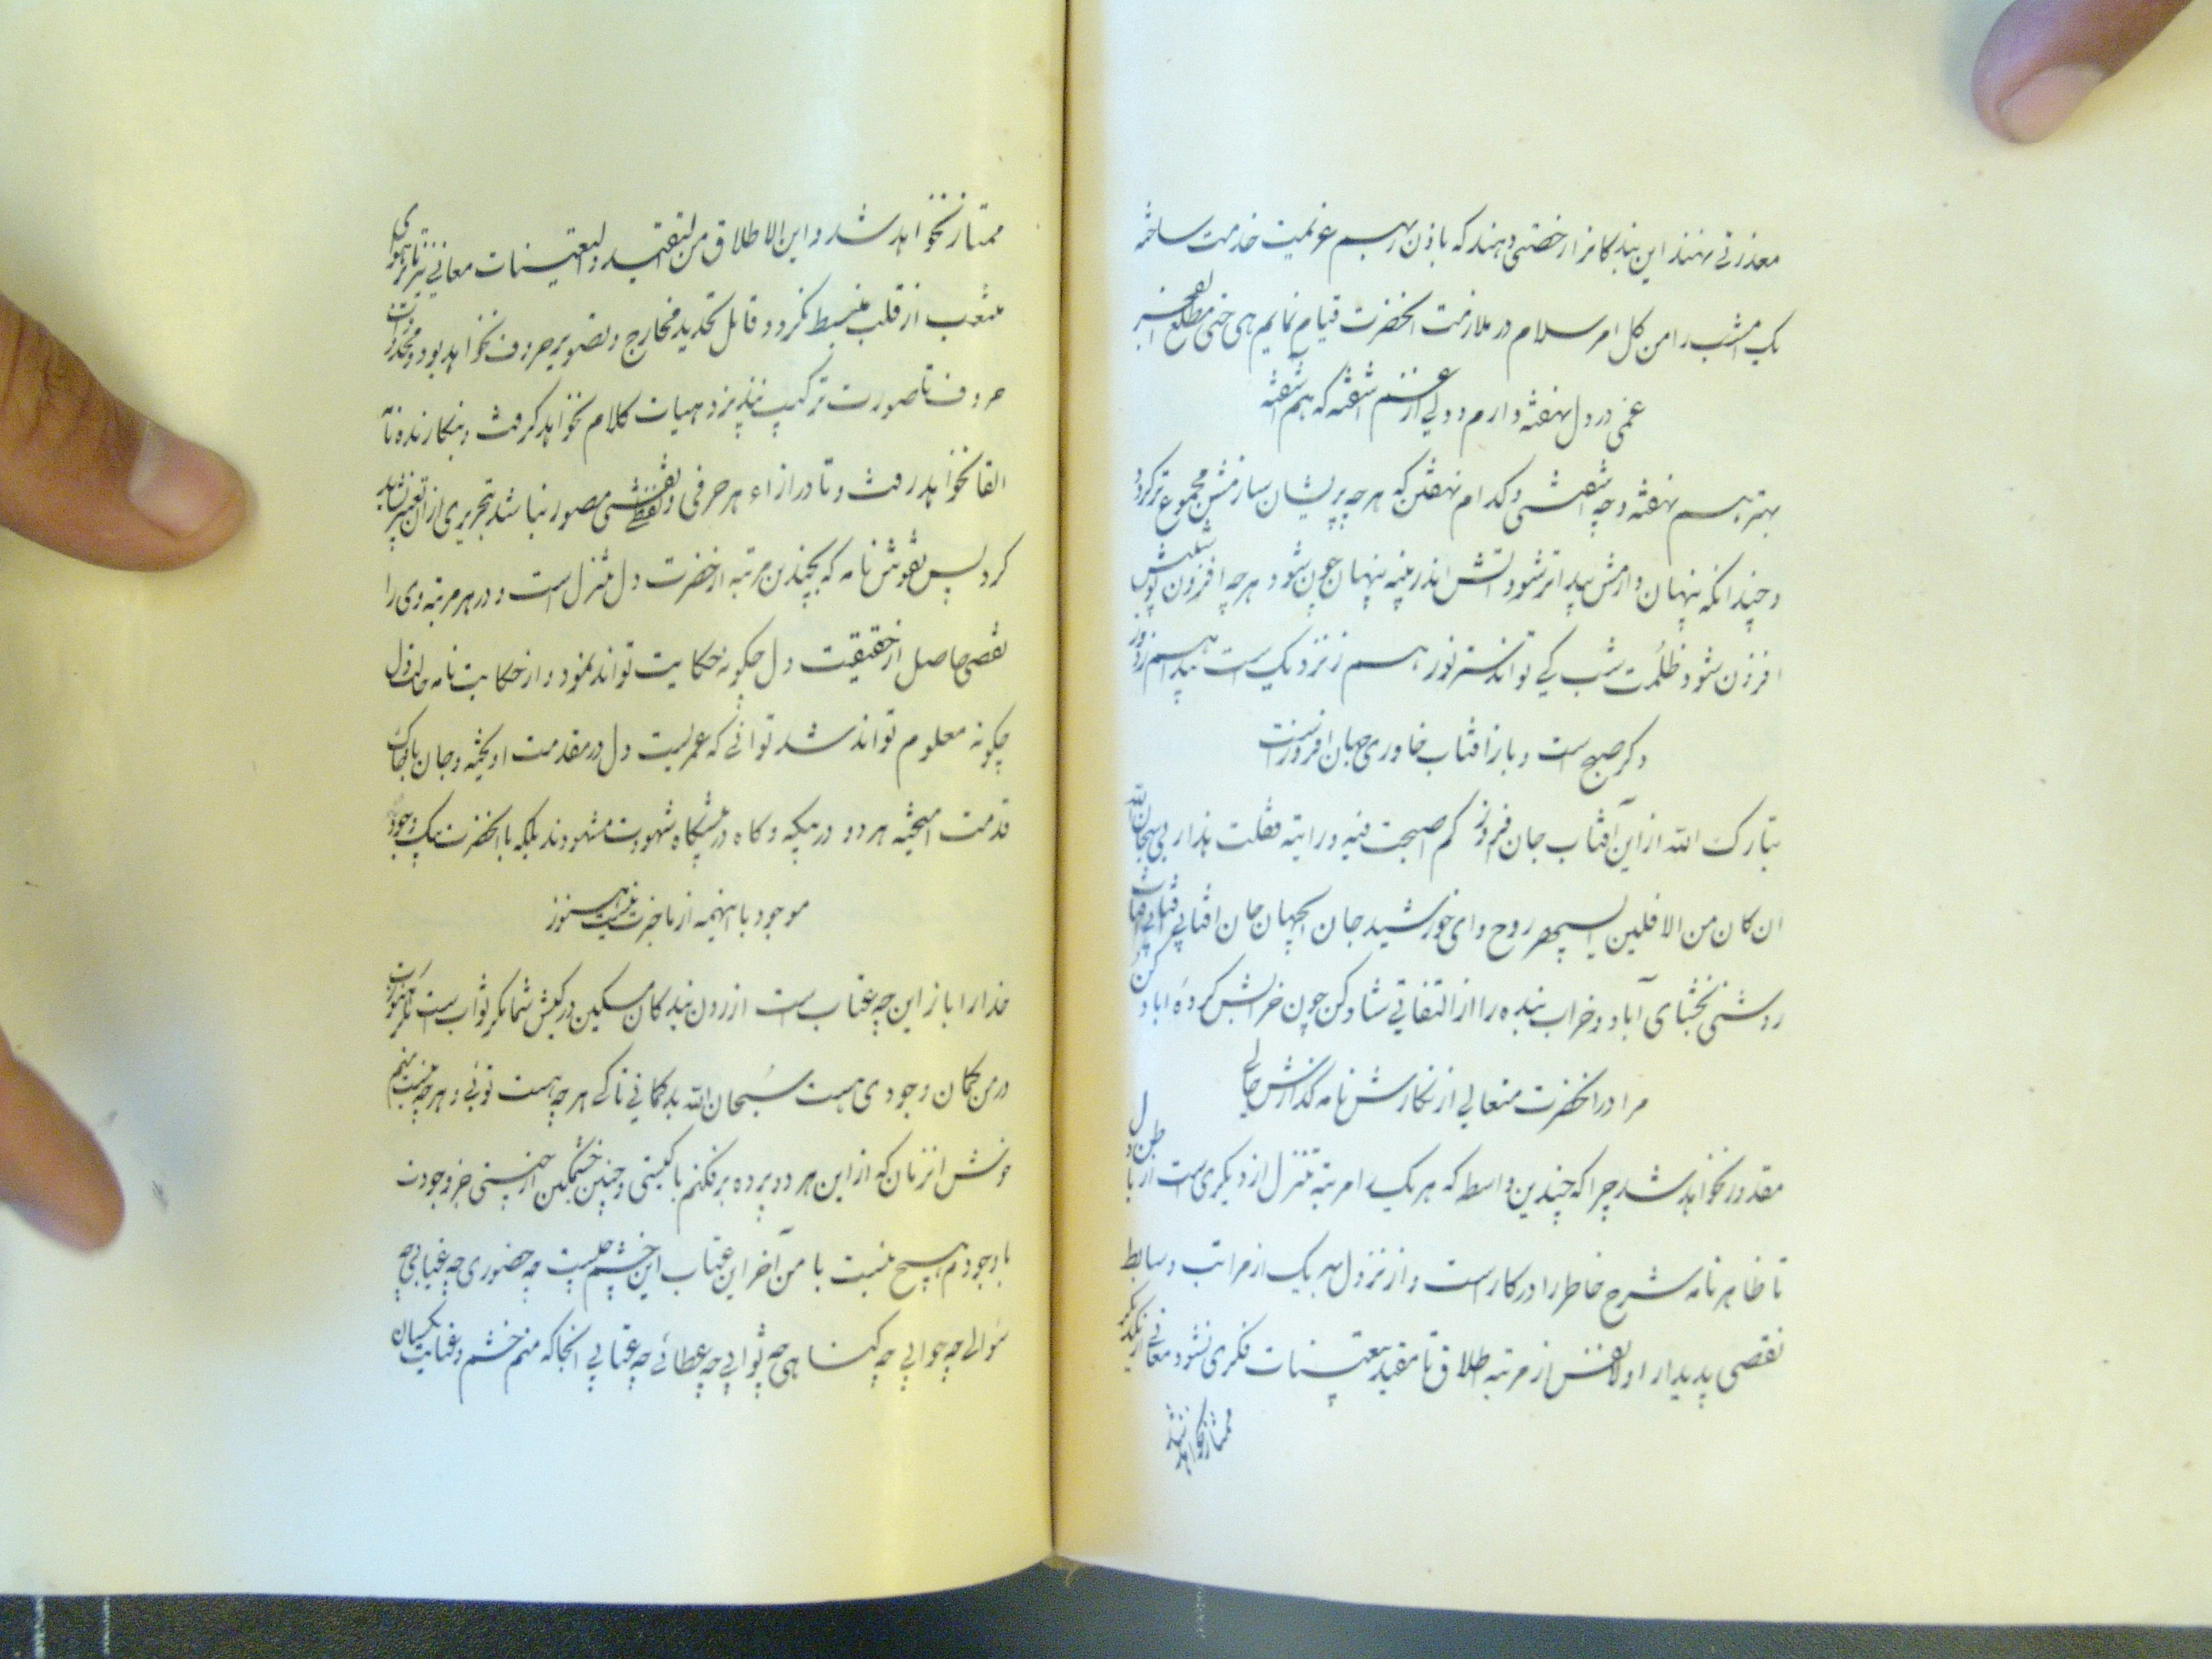 معذرتی نهند این بندکانرا رخصتی دهند که باذن رهسم عزیمت خدمت ساخته
یک امشب را من کل امر سلام در ملازمت انحضرت قیام نمایم هی حتی مطلع الفجر
غمی در دل نهفته دارم و ولی از غم اشفته که هم اشفته
بهتر هسم نهفته و چه اشفتسی و کدام نهفتن که هر چه پریشان سازمش مجموع تر کردد
و چندانکه پنهان دارمش پیداتر شود اتش اندر پنبه پنهان چون شود هر چه افزون پوشیش
افزون شود ظلمت شب کی تواند ستر نور هسم ز نزدیکست پیدا هم ز دور
دکر صبح است و باز افتاب خاوری جهان افروزست
تبارک الله از این آفتاب جان فروز کم اصبحت فیه و رایته فقلت هذا ربی سبحان الله
ان کان من الافلین ای سپهر روح و ای خورشید جان ای جهان جان افتابی
روشنی بخشای آباد و خراب بنده را از التفاتی شاد کن چون خرابش کرده اباد کن
مرا در انحضرت متعالی از نکارش نامه کذارش حالی
مقدور نخواهد شد چرا که چندین واسط که هر یک را مرتبه تنزل از دیکری است از باطن دل
تا ظاهر نامه شرح خاطر را در کار است و از نزول بهر یک از مراتب وسایط
نقصی پدیدار اولا نفس از مرتبه اطلاق تا مقید بتعینات فکری نشود معانی از یکدیکر
ممتاز نخواهد شد
ممتاز نخواهد شد و این الاطلاق من التقیید و التعینات معانی نیز تا بهوای
منشعب از قلب منبسط نکردد قابل تحدید مخارج و تصویر حروف نخواهد بود و محدودات
حروف تا صورت ترکیب نپذیرد هیات کلام نخواهد کرفت و نکارنده تا
القا نخواهد رفت و تا در ازاء هر حرفی و لفظی نقشی مصور نباشد تحریری از ان تعبیر نشاید
کرد پس نقوش نامه که بچندین مرتبه از حضرت دل متنزل است و در هر مرتبه وی را
نقصی حاصل از حقیقت دل چکونه حکایت تواند نمود و از حکایت نامه حالت دل
چکونه معلوم تواند شد توانی که عمریست دل در مقدمت اویخته و جان با خاک
قدمت امیخته هر دو در پیکه و کاه در پیشکاه شهودت مشهودند بلکه با انحضرت بیک وجود
موجود با اینهمه از ما خبرت نیست هنوز
خدا را باز این چه عتاب است ازردن بندکان مسکین در کیش شما مکر ثواب است
در من کمان وجودی هست سبحان الله بدکمانی تا کی هر چه هست توئی و هر چه نیست منم
خوش انزمان که از این هر دو پرده برفکنم با کیستی و چنین خشمکین از چیستی جز وجودت
با وجودم هیچ نیست با من آخر این عتاب این خشم چیست چه حضوری چه غیابی چه
سوالی چه جوابی چه کناهی چه ثوابی چه عطائی چه عتابی انجا که منم خشم و عنایت یکسان